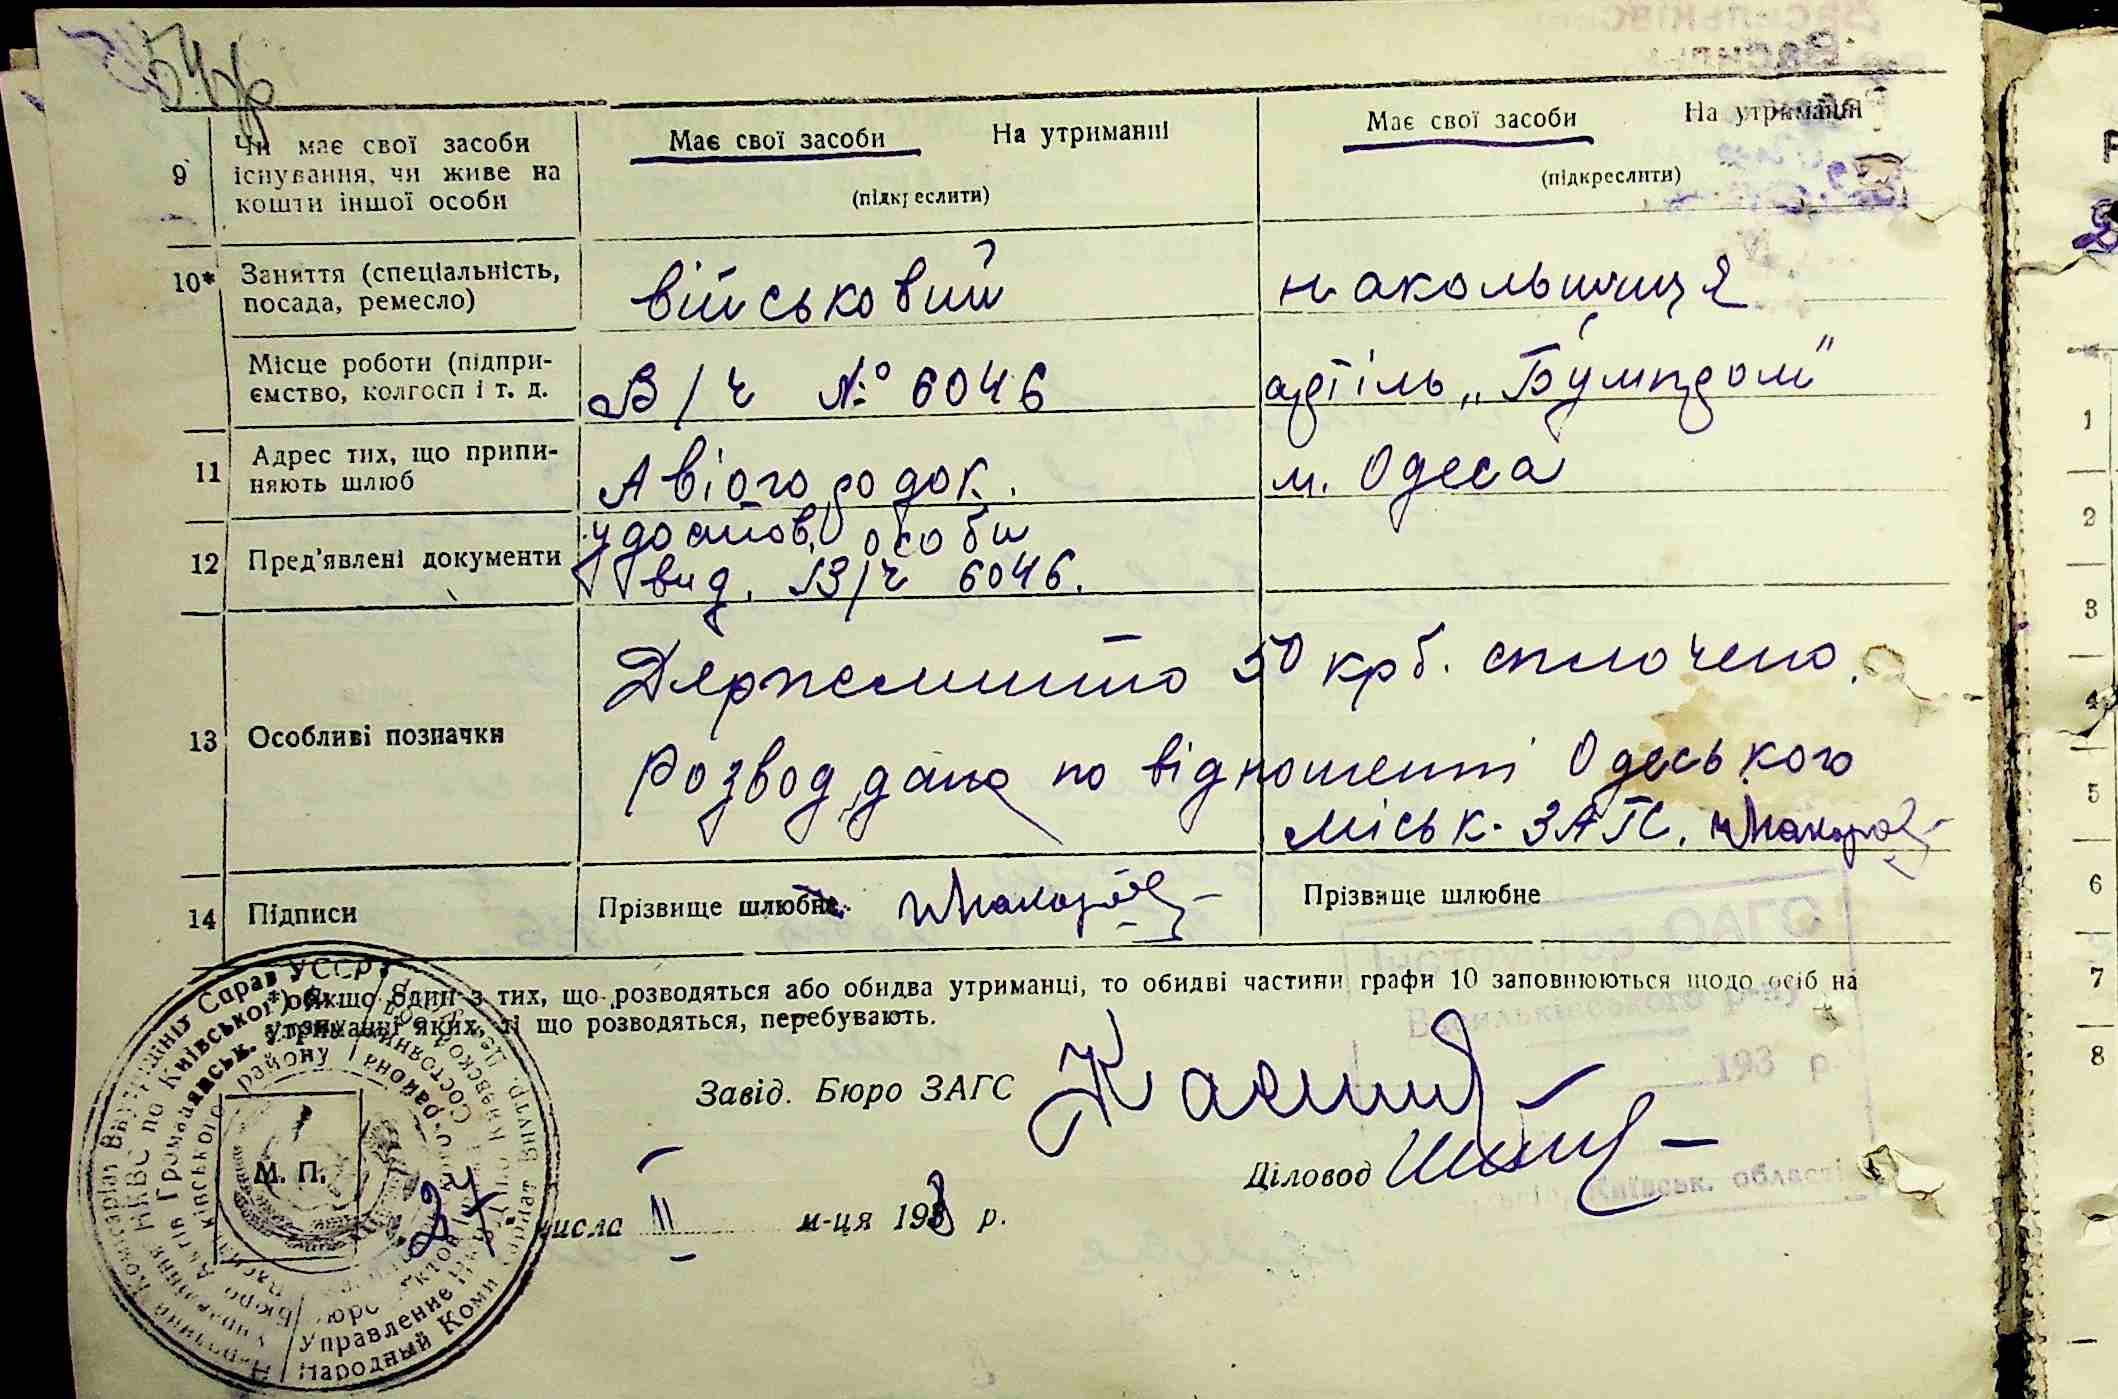 9 Чи має свої засоби існування, чи живе на кошти іншої особи
Має свої засоби На утриманні
(підкреслити)
Має свої засоби На утриманні
(підкреслити)
10* Заняття (спеціальність, посада, ремесло)
військовий
накольщиця
Місце роботи (підпри-
ємство, колгосп і т. д.
В/ч № 6046
артіль „Бумпром"
11 Адрес тих, що припи-
няють шлюб
Авіогородок.
м. Одеса
12 Пред'явлені документи
удостов. особи
вид. В/ч 6046.
13 Особливі позначки
Держмито 50 крб. сплочено.
Розвод дано по відношенні Одеського
міськ. ЗАГС.
14 Підписи
Прізвище шлюбне
Прізвище шлюбне
*) Якщо один з тих, що розводяться або обидва утриманці, то обидві частини графи 10 заповнюються щодо осіб на
утриманні яких, ті що розводяться, перебувають.
Завід. Бюро ЗАГС
Діловод
М. П.
27 числа II м-ця 1938 р.
Васильківського р-ну
193 р.
Київськ. області
Управление
Народный Коми
1
2
3
4
5
6
7
8